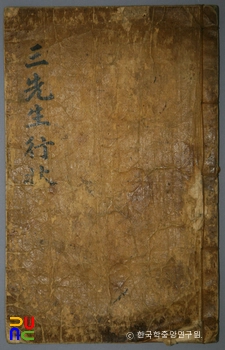 三先生行狀
ⓒ 한국학중앙연구원